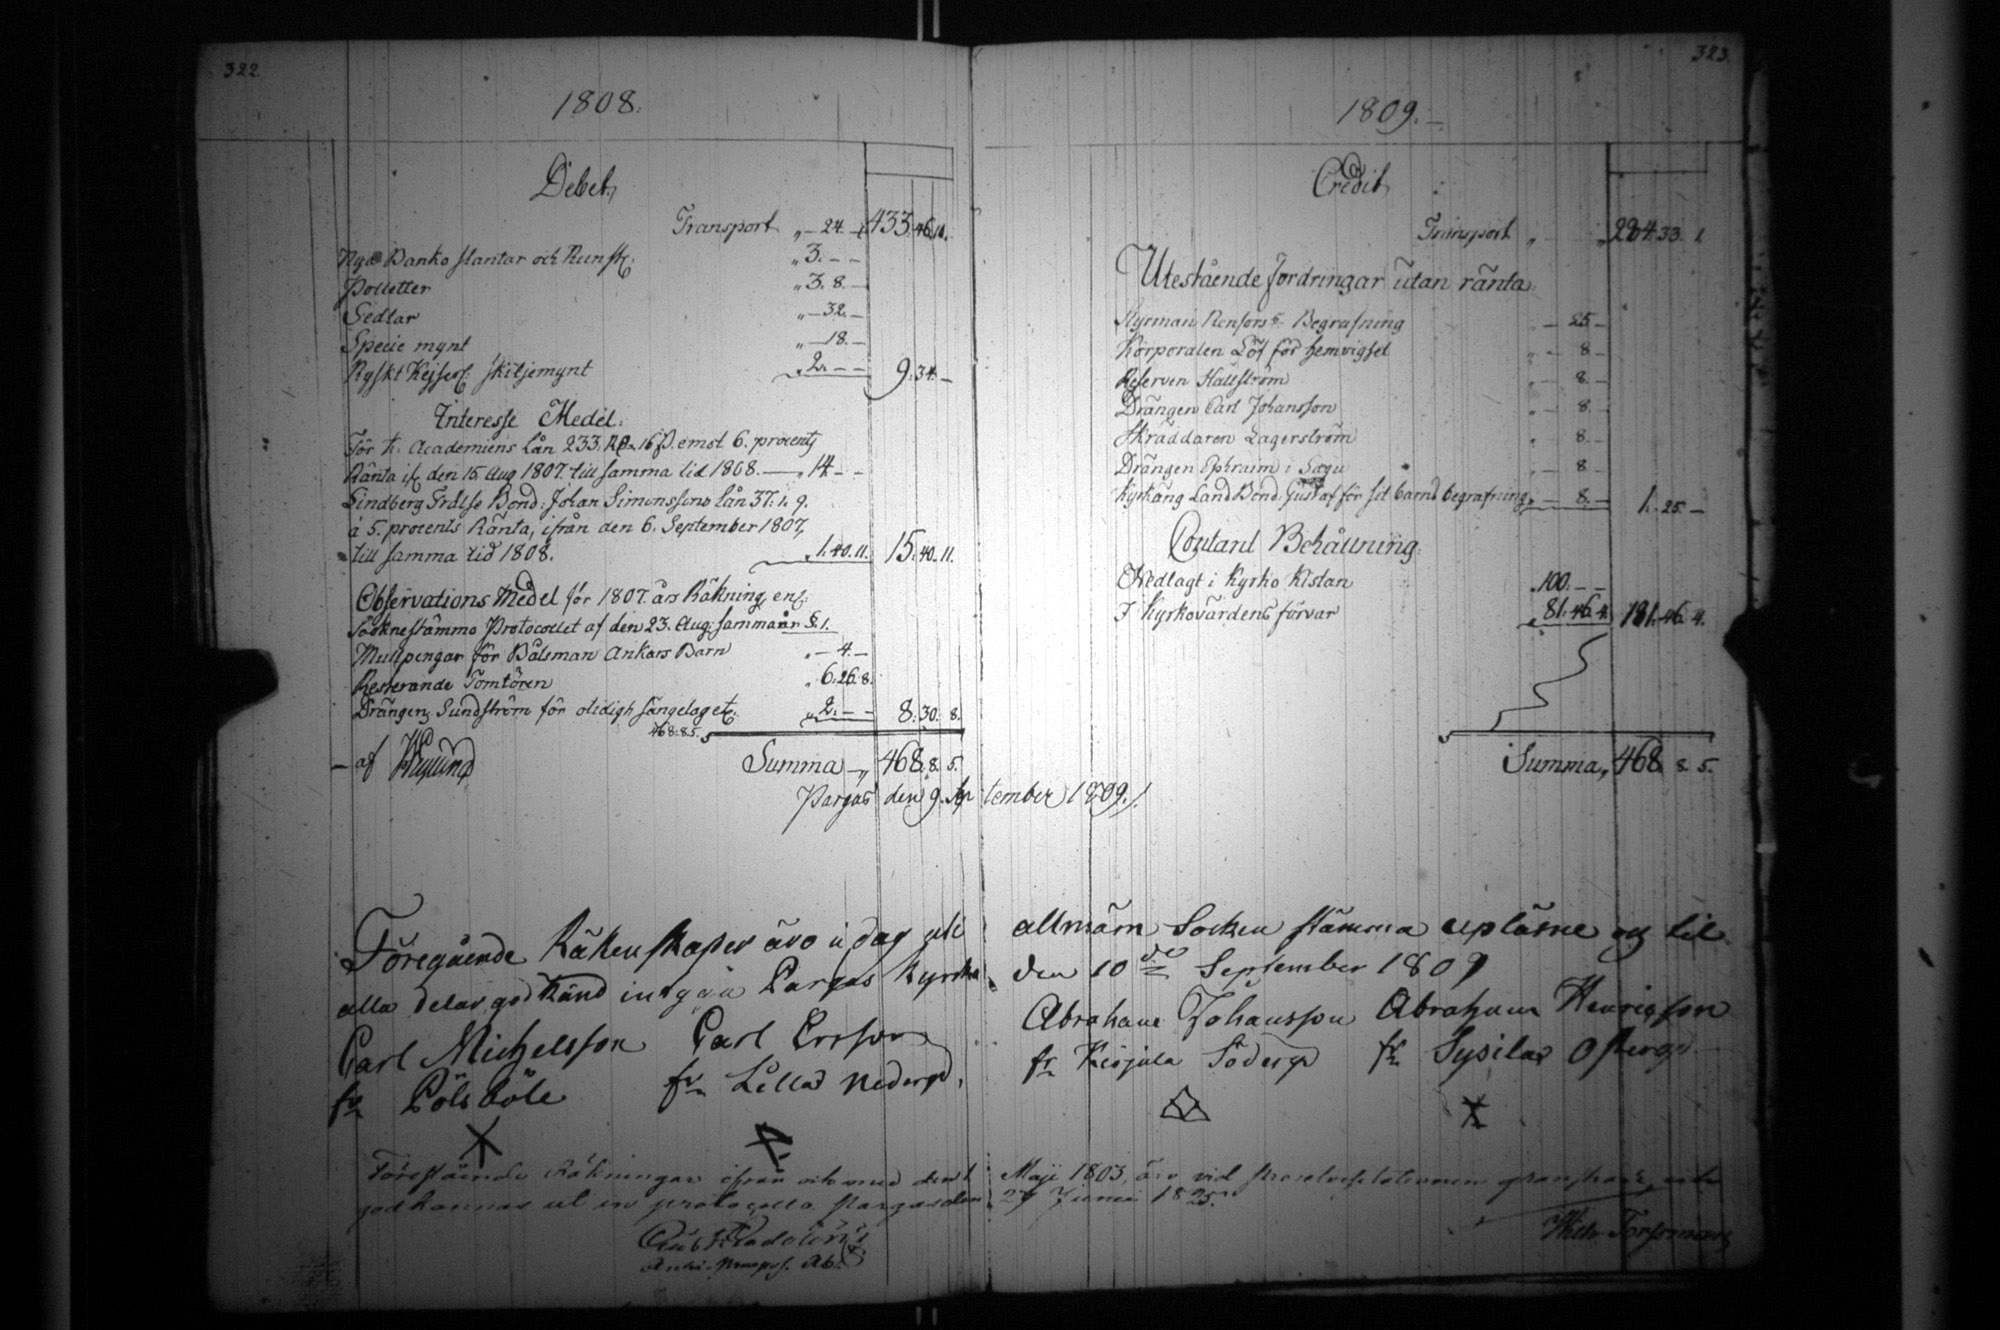 322.
1808.
Debet,
Transport „ – 24. – 433. 46. 11.
Nya Banko slantar och Runst: „ 3. – –
Polletter „ 3. 8. –
Sedlar „ – 32. –
Specie mynt „ – 18. –
Ryskt Kejserl: skiljemynt „ 2. – – 9. 34. –
Interesse Medel:
För k. Academiens Lån 233. Rd. 16 s. emot 6. procents
Ränta if. den 15. Aug 1807. till samma tid 1808. „ 14 – –
Lindberg Frälse Bond: Johan Simonssons Lån 37. 1. 9.
à 5. procents Ränta, ifrån den 6. September 1807,
till samma tid 1808. „ 1. 40. 11. 15. 40. 11.
Observations Medel för 1807. års Räkning, enl:
Soknestämmo Protocollet af den 23. Aug: samma år 8. 1.
Mullpengar för Båtsman Ankars Barn „ – 4. –
Resterande Tomtören „ 6. 26. 8.
Drängen Sundström för otidigh sängelaget: „ 2. – – 8. 30. 8.
468. 8. 5.
af Höglund Summa „ 468. 8. 5.
Pargas den 9. September 1809.
323.
1809.
Credit,
Transport „ 284. 33. 1.
Utestående fordringar utan ränta.
Styrman Renfors s: Begrafning „ – 25 –
Korporalen Löf för hemvigsel „ – 8. –
Reserven Hallström „ – 8. –
Drängen Carl Johansson „ – 8. –
Skräddaren Lagerström „ – 8. –
Drängen Ephraim i „ – 8. –
Kyrkäng Land Bond: Gustaf för sit barns begrafning „ – 8. – 1. 25. –
Contant Behållning:
Nedlagt i Kyrko Kistan „ 100. – –
I Kyrkovärdens förvar „ 81. 46. 4. 181. 46. 4.
Summa „ 468. 8. 5.
Föregående Räkenskaper äro i dag uti allmän Socken stämma upläsne og til
alla delar godkänd intyga Pargas Kyrka den 10de September 1809
Carl Michelsson Carl Ersson Abraham Johansson Abraham Henrigsson
fr Pölsböle fr Lilla Nedergd. fr Kirjala Södergd fr Sysilax Östergd
Förestående Räkningar ifrån och med den 1 Maji 1803, äro vid granskade
godkannas ut in protocollo. Pargas den 27 Junii 1825.